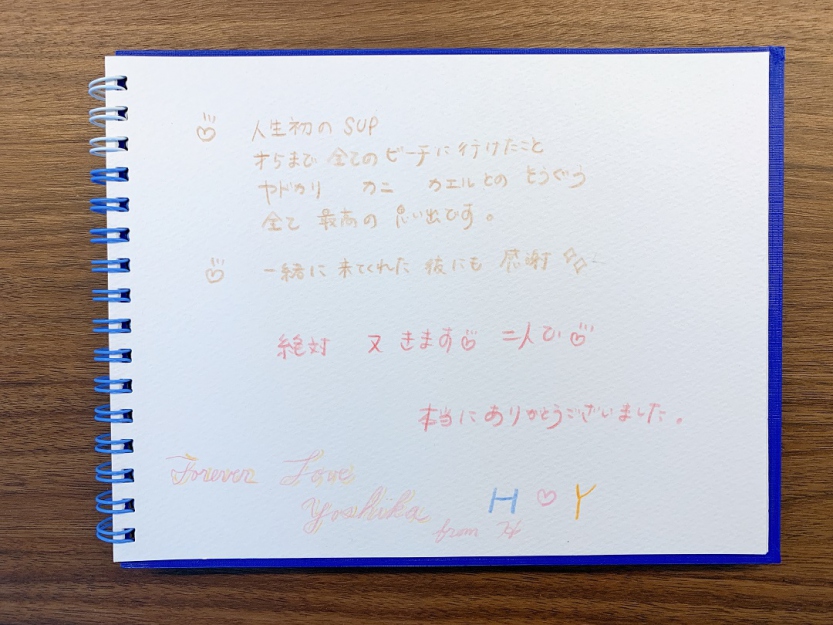 人生初の SUP
すらまで 全てのビーチに行けたこと
ヤドカリ カニ カエルとの そうぐう
全て 最高の 思い出です。
一緒に 来てくれた 彼にも 感謝
絶対 又 きます 二人で
本当にありがとうございました。
Forever Love
Yoshika
from H
H ♡ Y